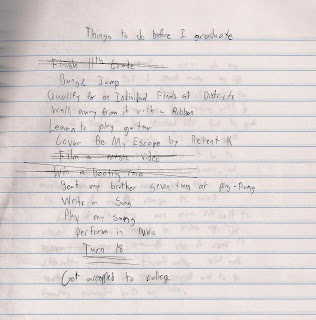 Things to do before I graduate
Finish 11th Grade
Bunge Jump
Qualify for an Individual Finals at Districts
Walk away from it with a Ribbon
Learn to play guitar
Cover Be My Escape by Relient K
Film a music video
Win a boating race
Beat my brother seven times at ping-pong
Write a Song
Play my song
Perform in Public
Turn 18
Get accepted to college